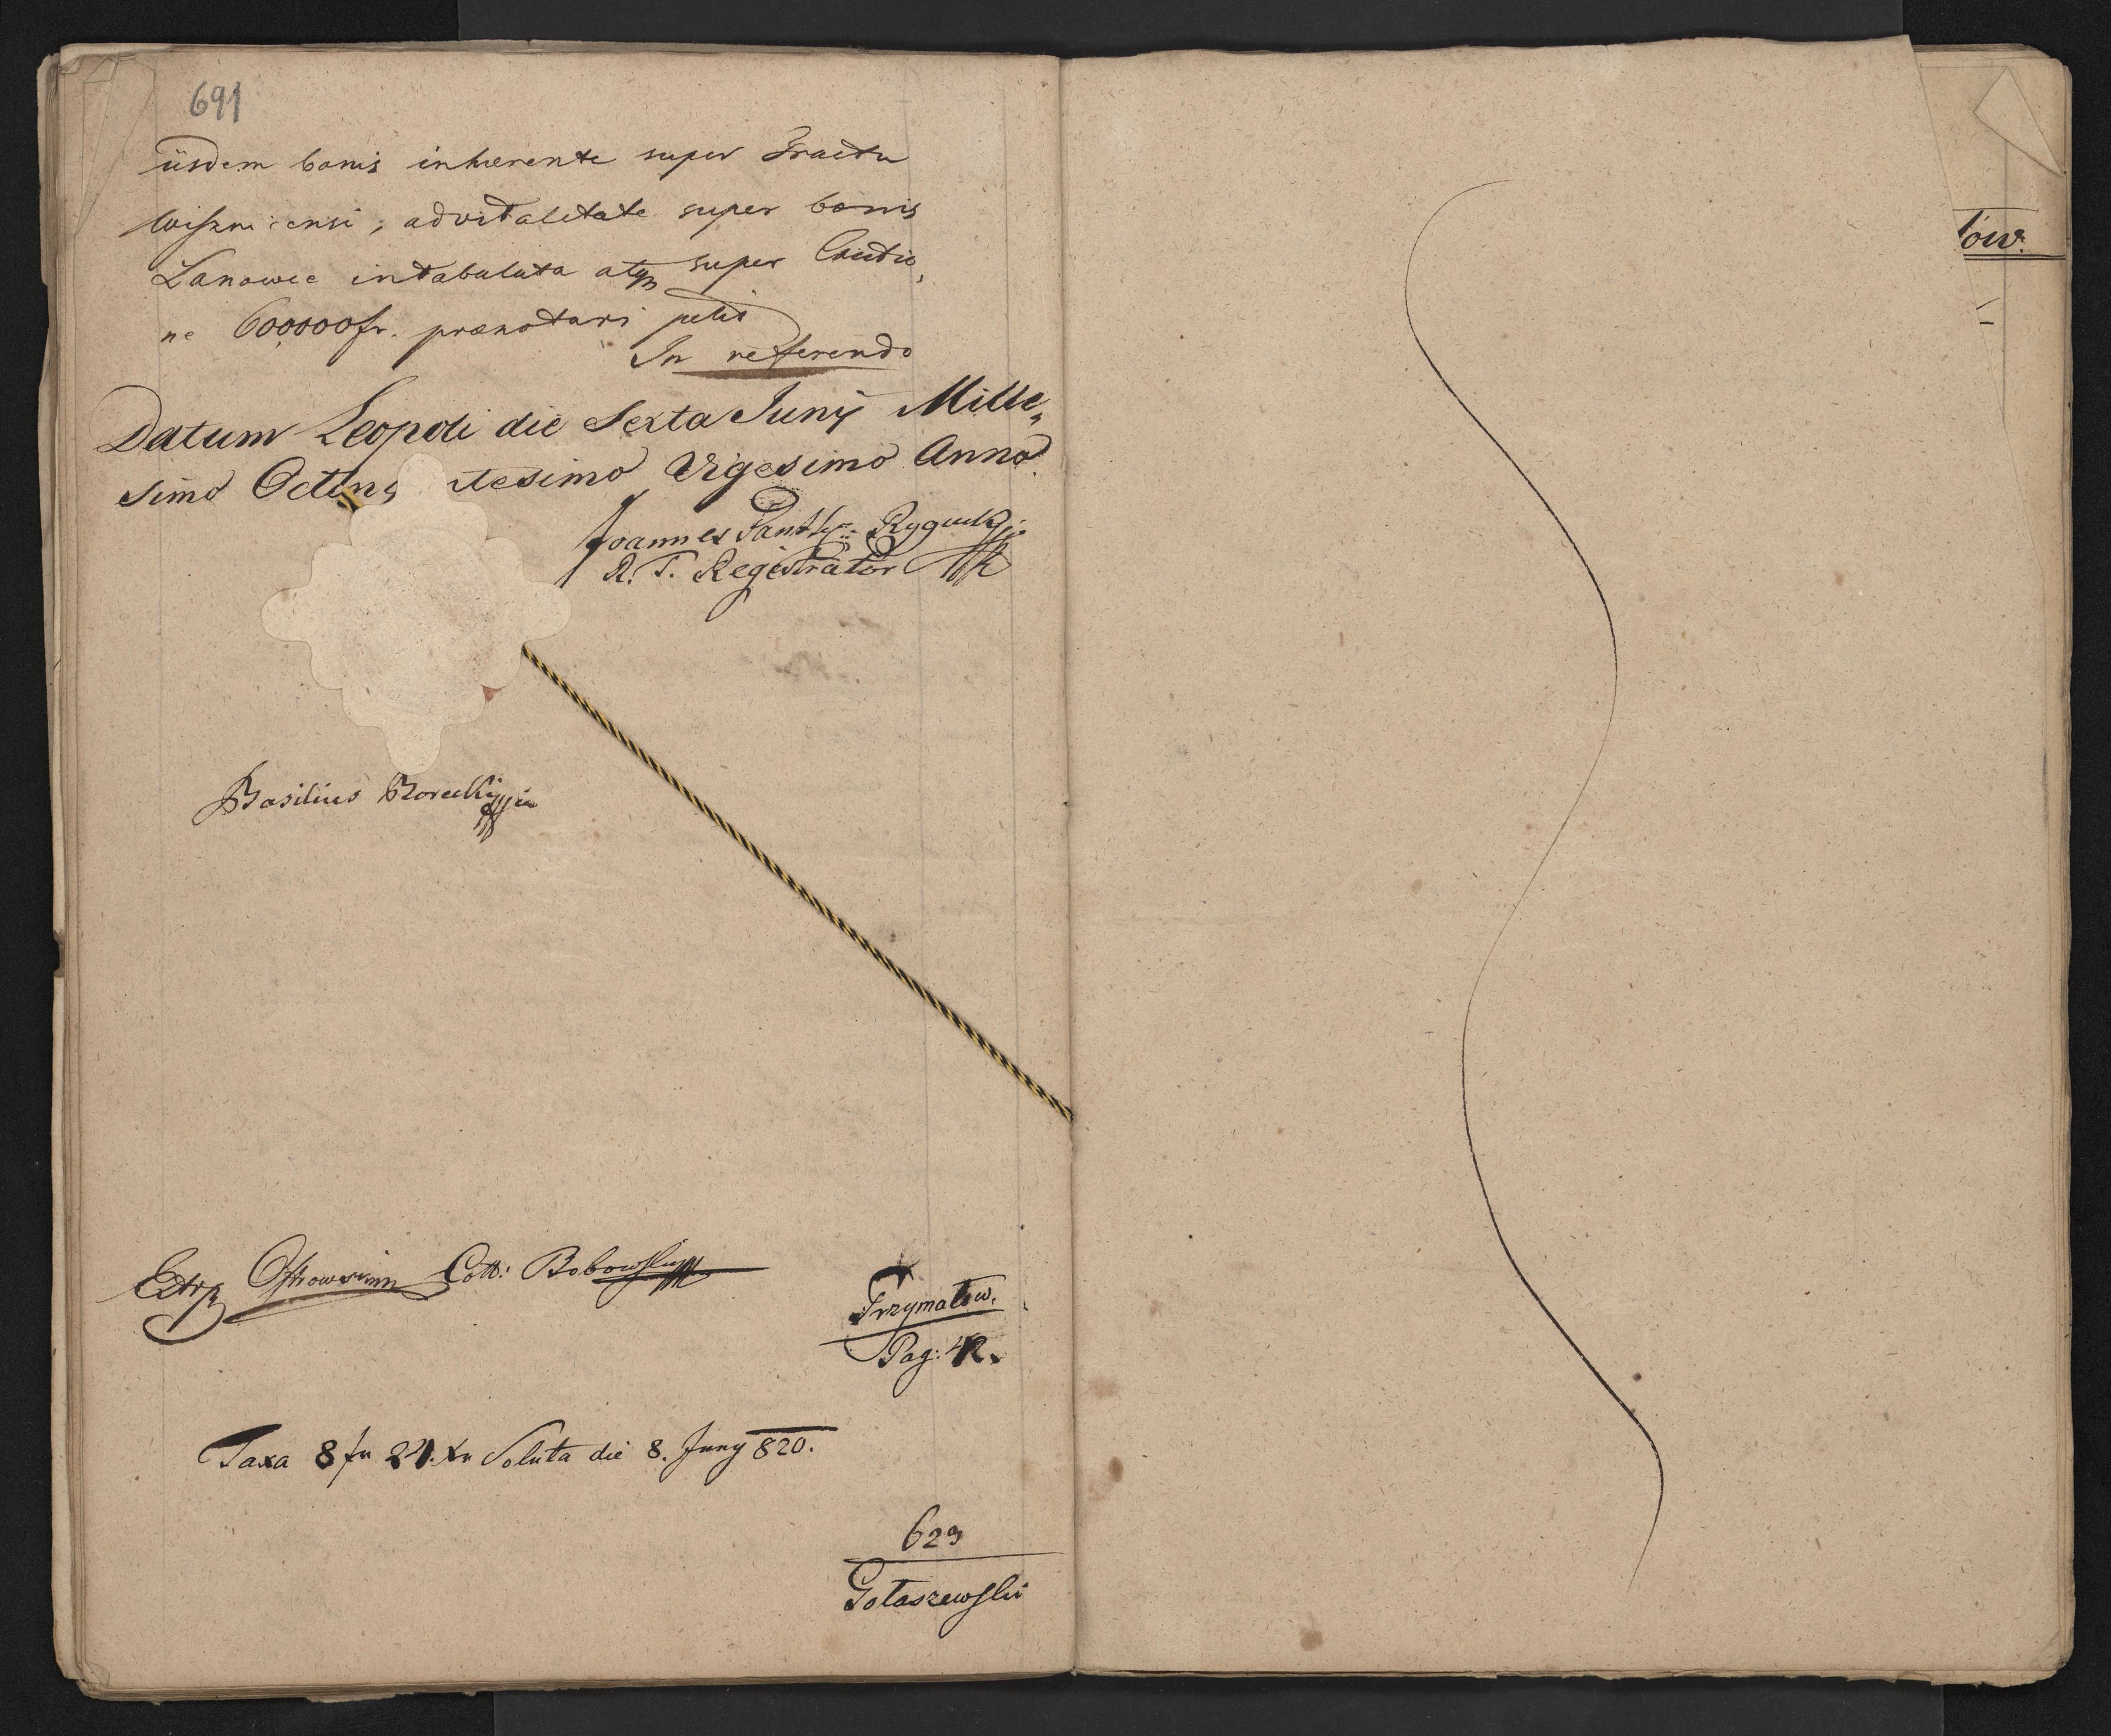 691
iisdem bonis inhærente super Tractu
Wiszniensi, advitalitate super bonis
Łanowce intabulata atq super Cautio,
ne 600000 fr. prænotari petit
In referendo
Datum Leopoli die Sexta Junÿ Mille,,
simo Octing tesimo Vigesimo Anno.
Joannes
R. T. Registrator
Basilius Borecki
Extr Ostrowski Coll: Bobowski
Grzymałow.
Pag: 42.
Taxa 8 fr 21. Xr Soluta die 8. Juny 820.
629
Gołaszewski
łów.